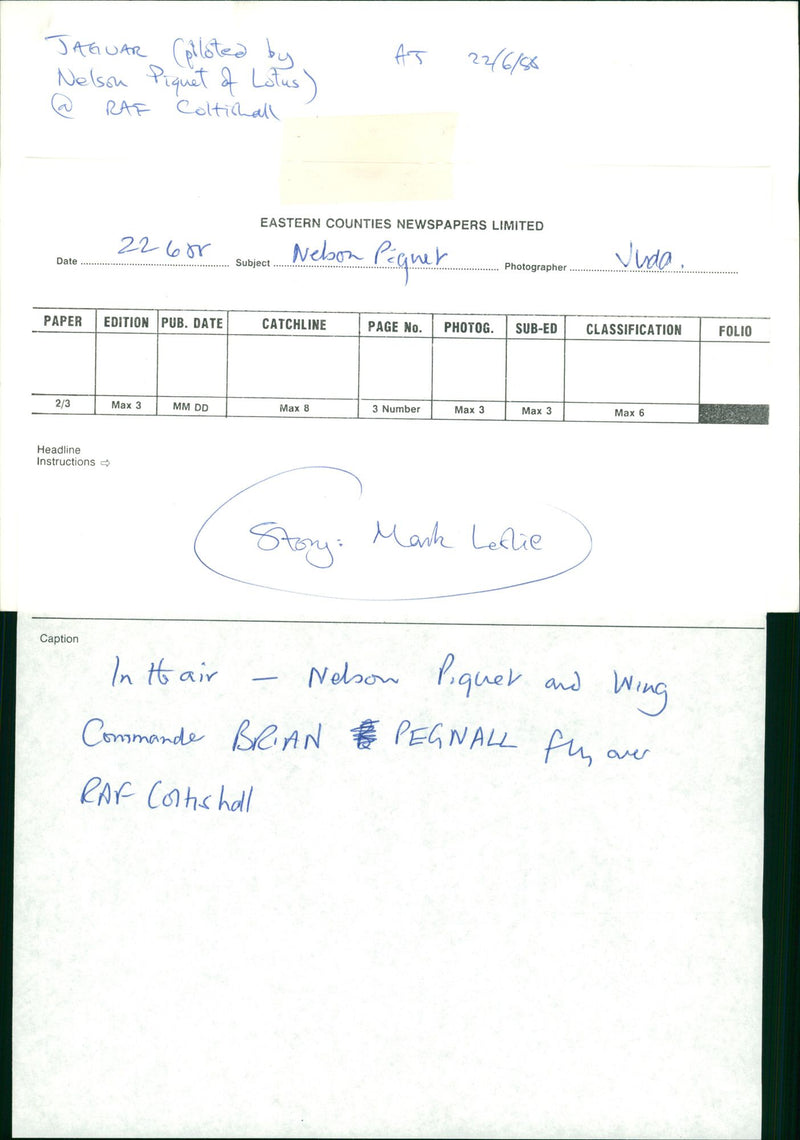 JAGUAR (piloted by AT 22/6/88
Nelson Piquet of Lotus)
@ RAF Coltishall
EASTERN COUNTIES NEWSPAPERS LIMITED
Date 22 6 88 Subject Nelson Piquet Photographer
PAPER EDITION PUB. DATE CATCHLINE PAGE No. PHOTOG. SUB-ED CLASSIFICATION FOLIO
2/3 Max 3 MM DD Max 8 3 Number Max 3 Max 3 Max 6
Headline
Instructions ⇨
Story: Mark Leslie
Caption
In the air — Nelson Piquet and Wing
Commander BRIAN PEGNALL fly over
RAF Coltishall